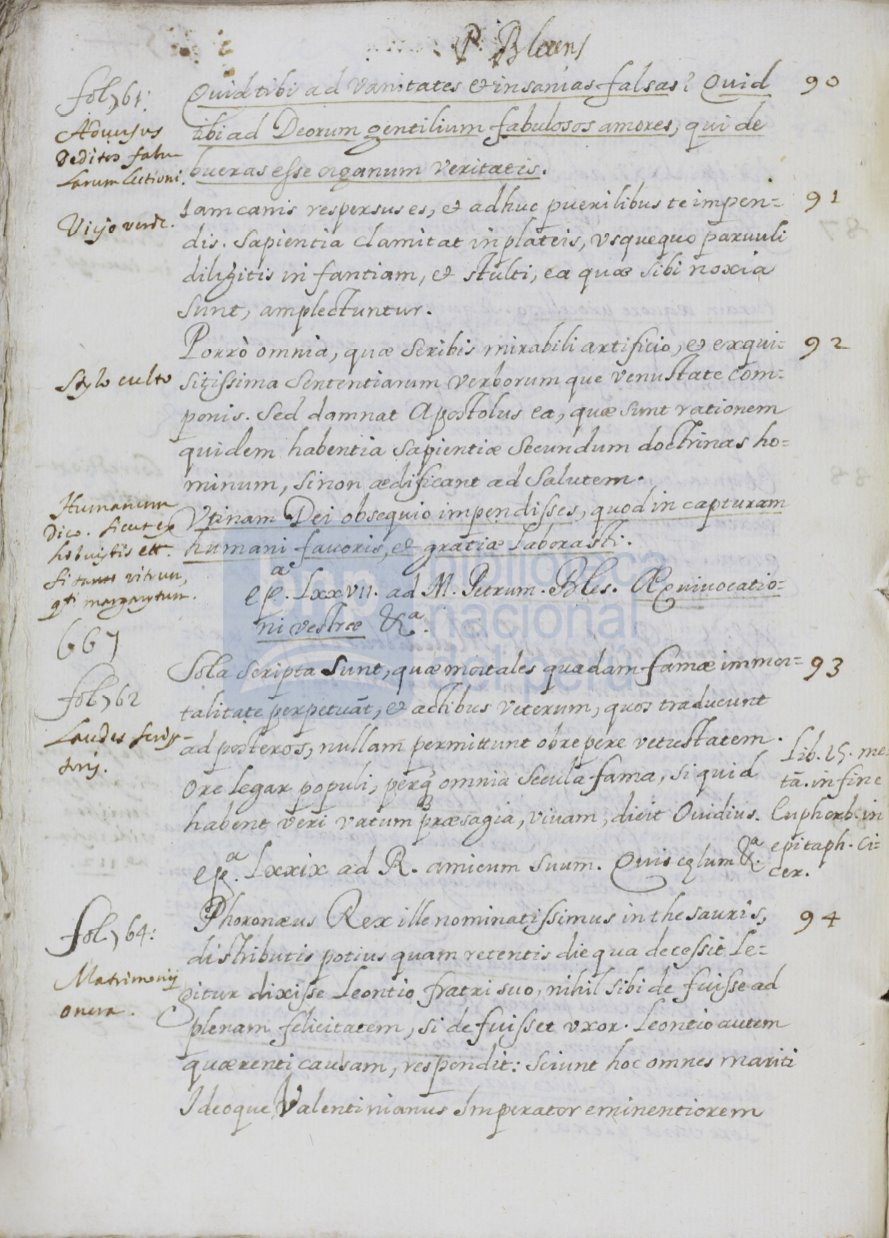 P. Blesens
fol. 761:
Adversus
Deditos fabu-
larum lectioni.
Quid tibi ad vanitates et insanias falsas? Quid 90
tibi ad Deorum gentilium fabulosos amores, qui de
bueras esse organum veritatis.
Viejo verde.
Iam canis respersus es, et adhuc puerilibus te impen- 91
dis. Sapientia clamitat in plateis, vsquequo paruuli
diligitis infantiam, et stulti, ea quæ sibi noxia
sunt, amplectuntur.
Stylo culto
Porrò omnia, quæ scribis mirabili artificio, et exqui- 92
sitissima sententiarum verborumque venustate com-
ponis. Sed damnat Apostolus ea, quæ sunt rationem
quidem habentia sapientiæ secundum doctrinas ho-
minum, si non ædificant ad salutem.
Humanum
Dico. sicut ex
hibuistis ett.
si tanti vitrum,
qti margaritum.
Vtinam Dei obsequio impendisses, quod in capturam
humani favoris, et gratiæ laborasti.
epa. Lxxvii. ad M. Petrum. Bles. Æquivocatio-
ni vestræ &a.
667
fol. 762
Laudes scrip-
toris.
Sola scripta sunt, quæ mortales quadam famæ immor- 93
talitate perpetuāt, et actibus veterum, quos traducunt
ad posteros, nullam permittunt obrepere vetustatem.
Ore legar populi, perq; omnia secula fama, si quid
habent veri vatum præsagia, vivam, dicit Ovidius.
Lib. 15. me
tā. in fine
Euphorb. in
epitaph. Ci-
cer.
epa. Lxxix ad R. amicum suum. Quis cęlum &a.
fol. 764:
Matrimonij
onera.
Phoronæus Rex ille nominatissimus in thesauris, 94
distributis potius quam retentis die qua decessit le-
gitur dixisse Leontio fratri suo, nihil sibi defuisse ad
plenam felicitatem, si defuisset vxor. Leontio autem
quærenti causam, respendit: sciunt hoc omnes mariti
Ideoque Valentinianus Imperator eminentiorem
bnp biblioteca
nacional
del perú